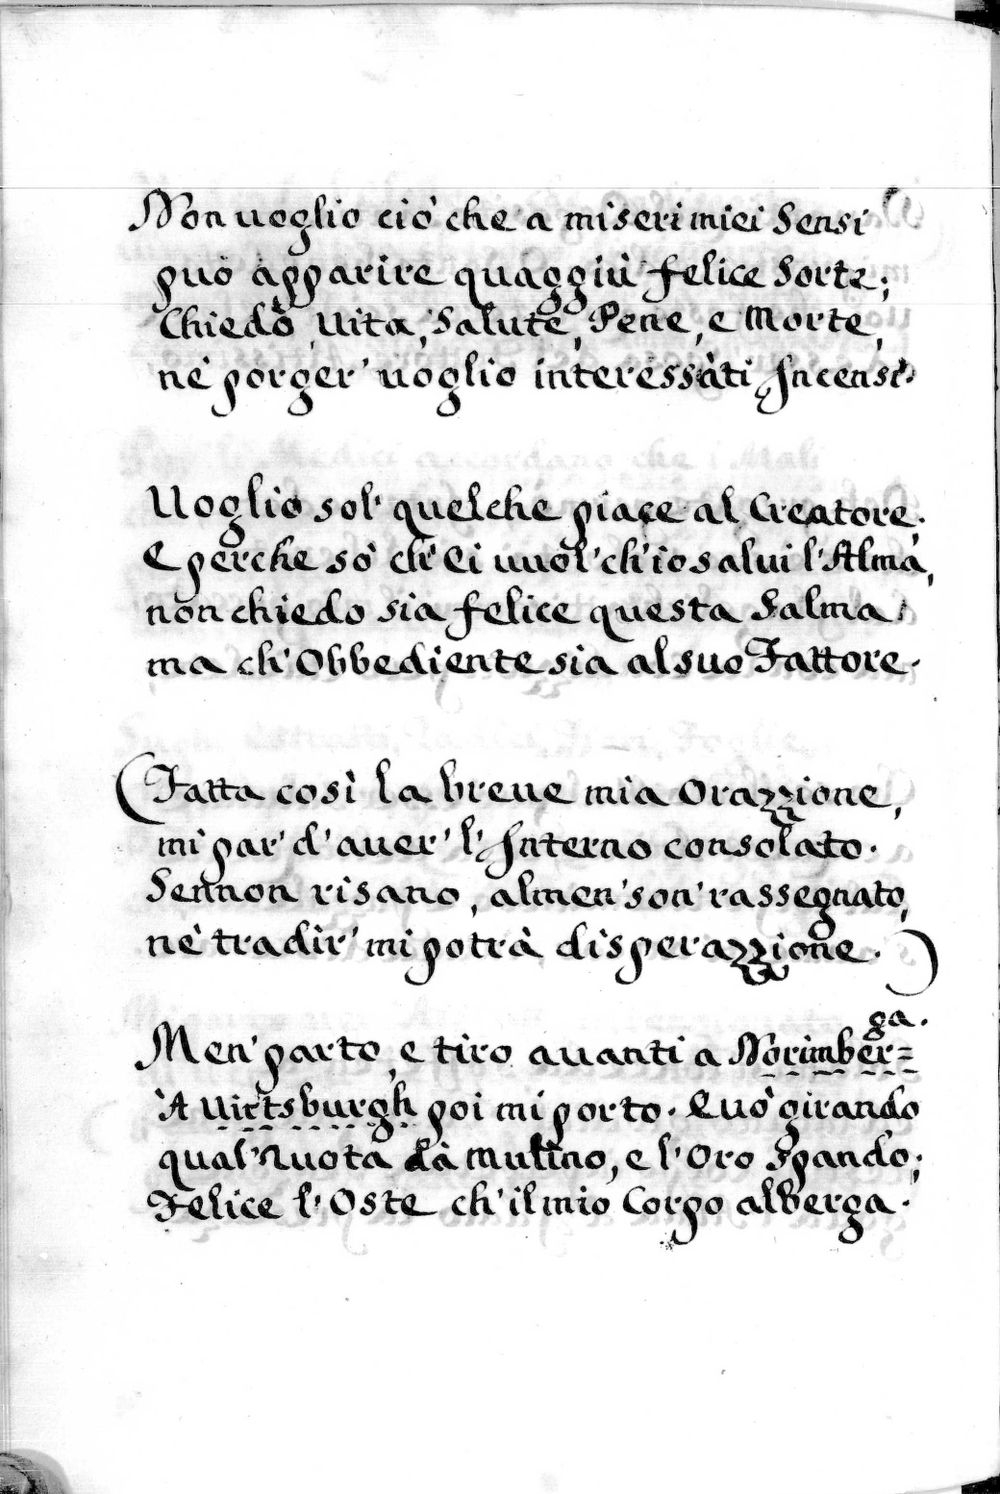 Non uoglio ciò che a miseri miei Sensi
può apparire quaggiù felice Sorte;
Chiedo, Uita, Salute, Pene, e Morte,
nè porger' uoglio interessati Incensi.
Uoglio sol' quelche piace al Creatore.
E perche sò ch'Ei uuol' ch'io salui l'Alma,
non chiedo sia felice questa Salma;
ma ch'Obbediente sia al suo Fattore.
(Fatta così la breue mia Orazzione,
mi par' d'auer' l'Interno consolato.
Sennon risano, almen' son' rassegnato,
nè tradir' mi potrà disperazzione.)
Men' parto, e tiro auanti a Norimber=
ga.
A Uirtsburgh poi mi porto. E uò girando
qual' Ruota da mulino, e l'Oro Spando;
Felice l'Oste ch'il mio Corpo alberga.